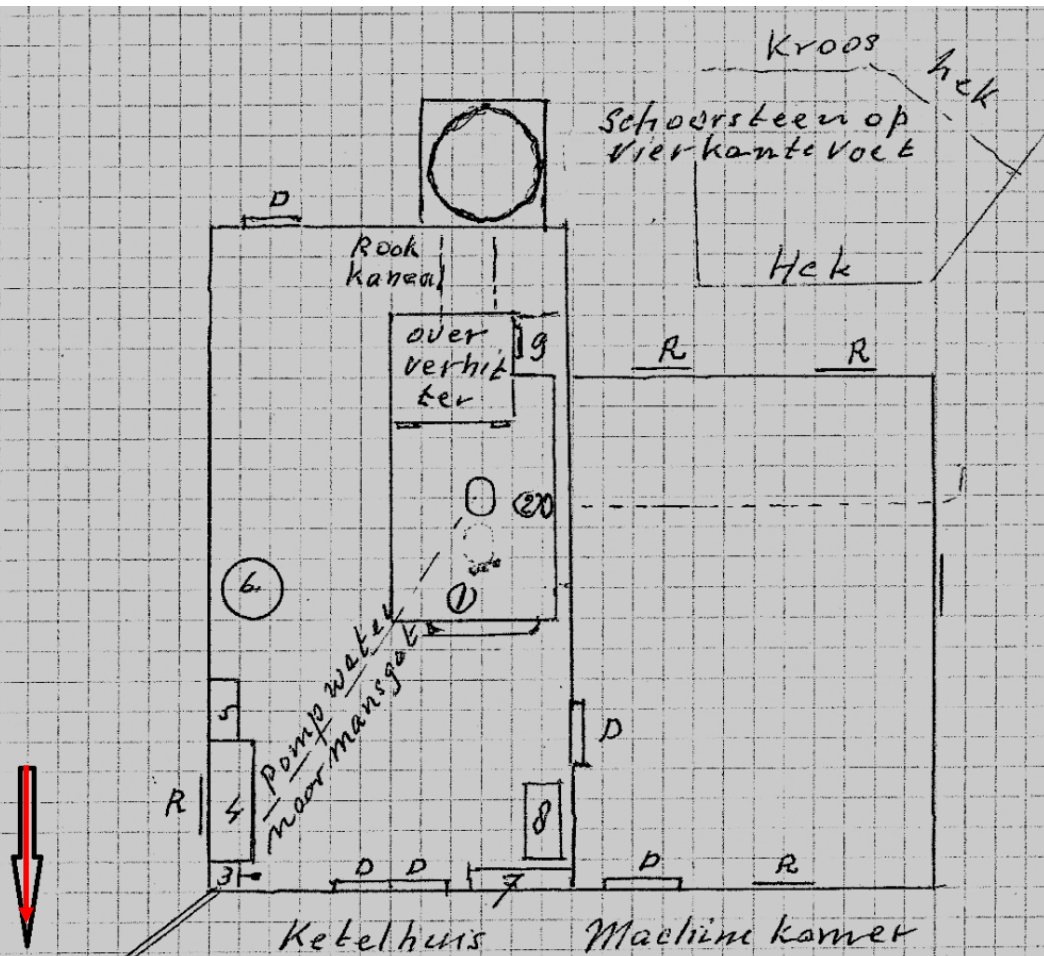 Kroos
hek
Schoorsteen op
vierkante voet
Hek
D
Rook
kanaal
over
verhit
ter
9
R
R
1
6.
Pomp water
naar mansgat
5
4
3
R
D
8
D
D
7
D
R
Ketelhuis
Machine kamer